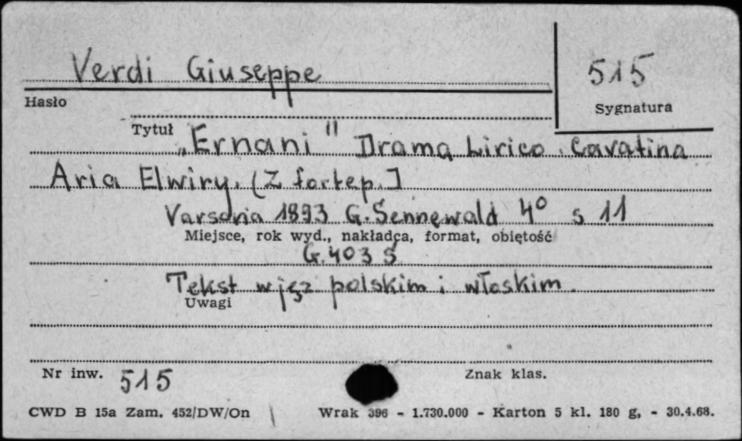 Verdi Giuseppe
515
Hasło
Sygnatura
Tytuł „Ernani" Drama Lirico. Cavatina
Aria Elwiry. (Z fortep.]
Varsovia 1893 G. Sennewald 4° s 11
Miejsce, rok wyd., nakładca, format, objętość
G. 403 S
Tekst w jęz polskim i włoskim.
Uwagi
Nr inw. 515
Znak klas.
CWD B 15a Zam. 452/DW/On Wrak 396 - 1.730.000 - Karton 5 kl. 180 g, - 30.4.68.